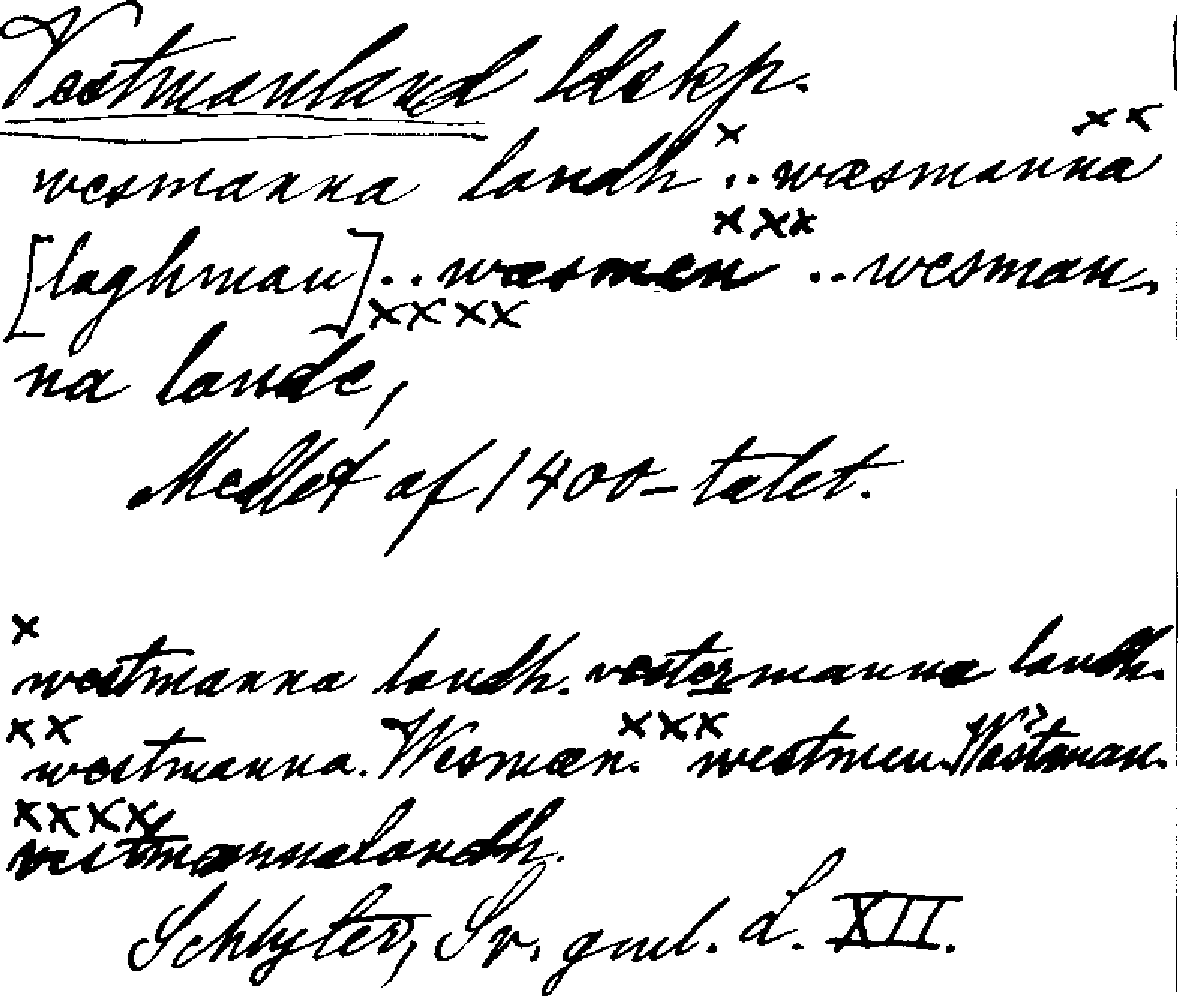 Vestmanland ldskp.
wesmanna landh x .. wæsmanna xx
[laghman] .. wæsmen xxx .. wesman-
na lande, xxxx
Medlet af 1400-talet.
x westmanna landh. vestermanna landh.
xx westmanna. Wesmæn. xxx westmen. Westman.
xxxx vestmannalandh.
Schlyter, Sv. gml. L. XII.